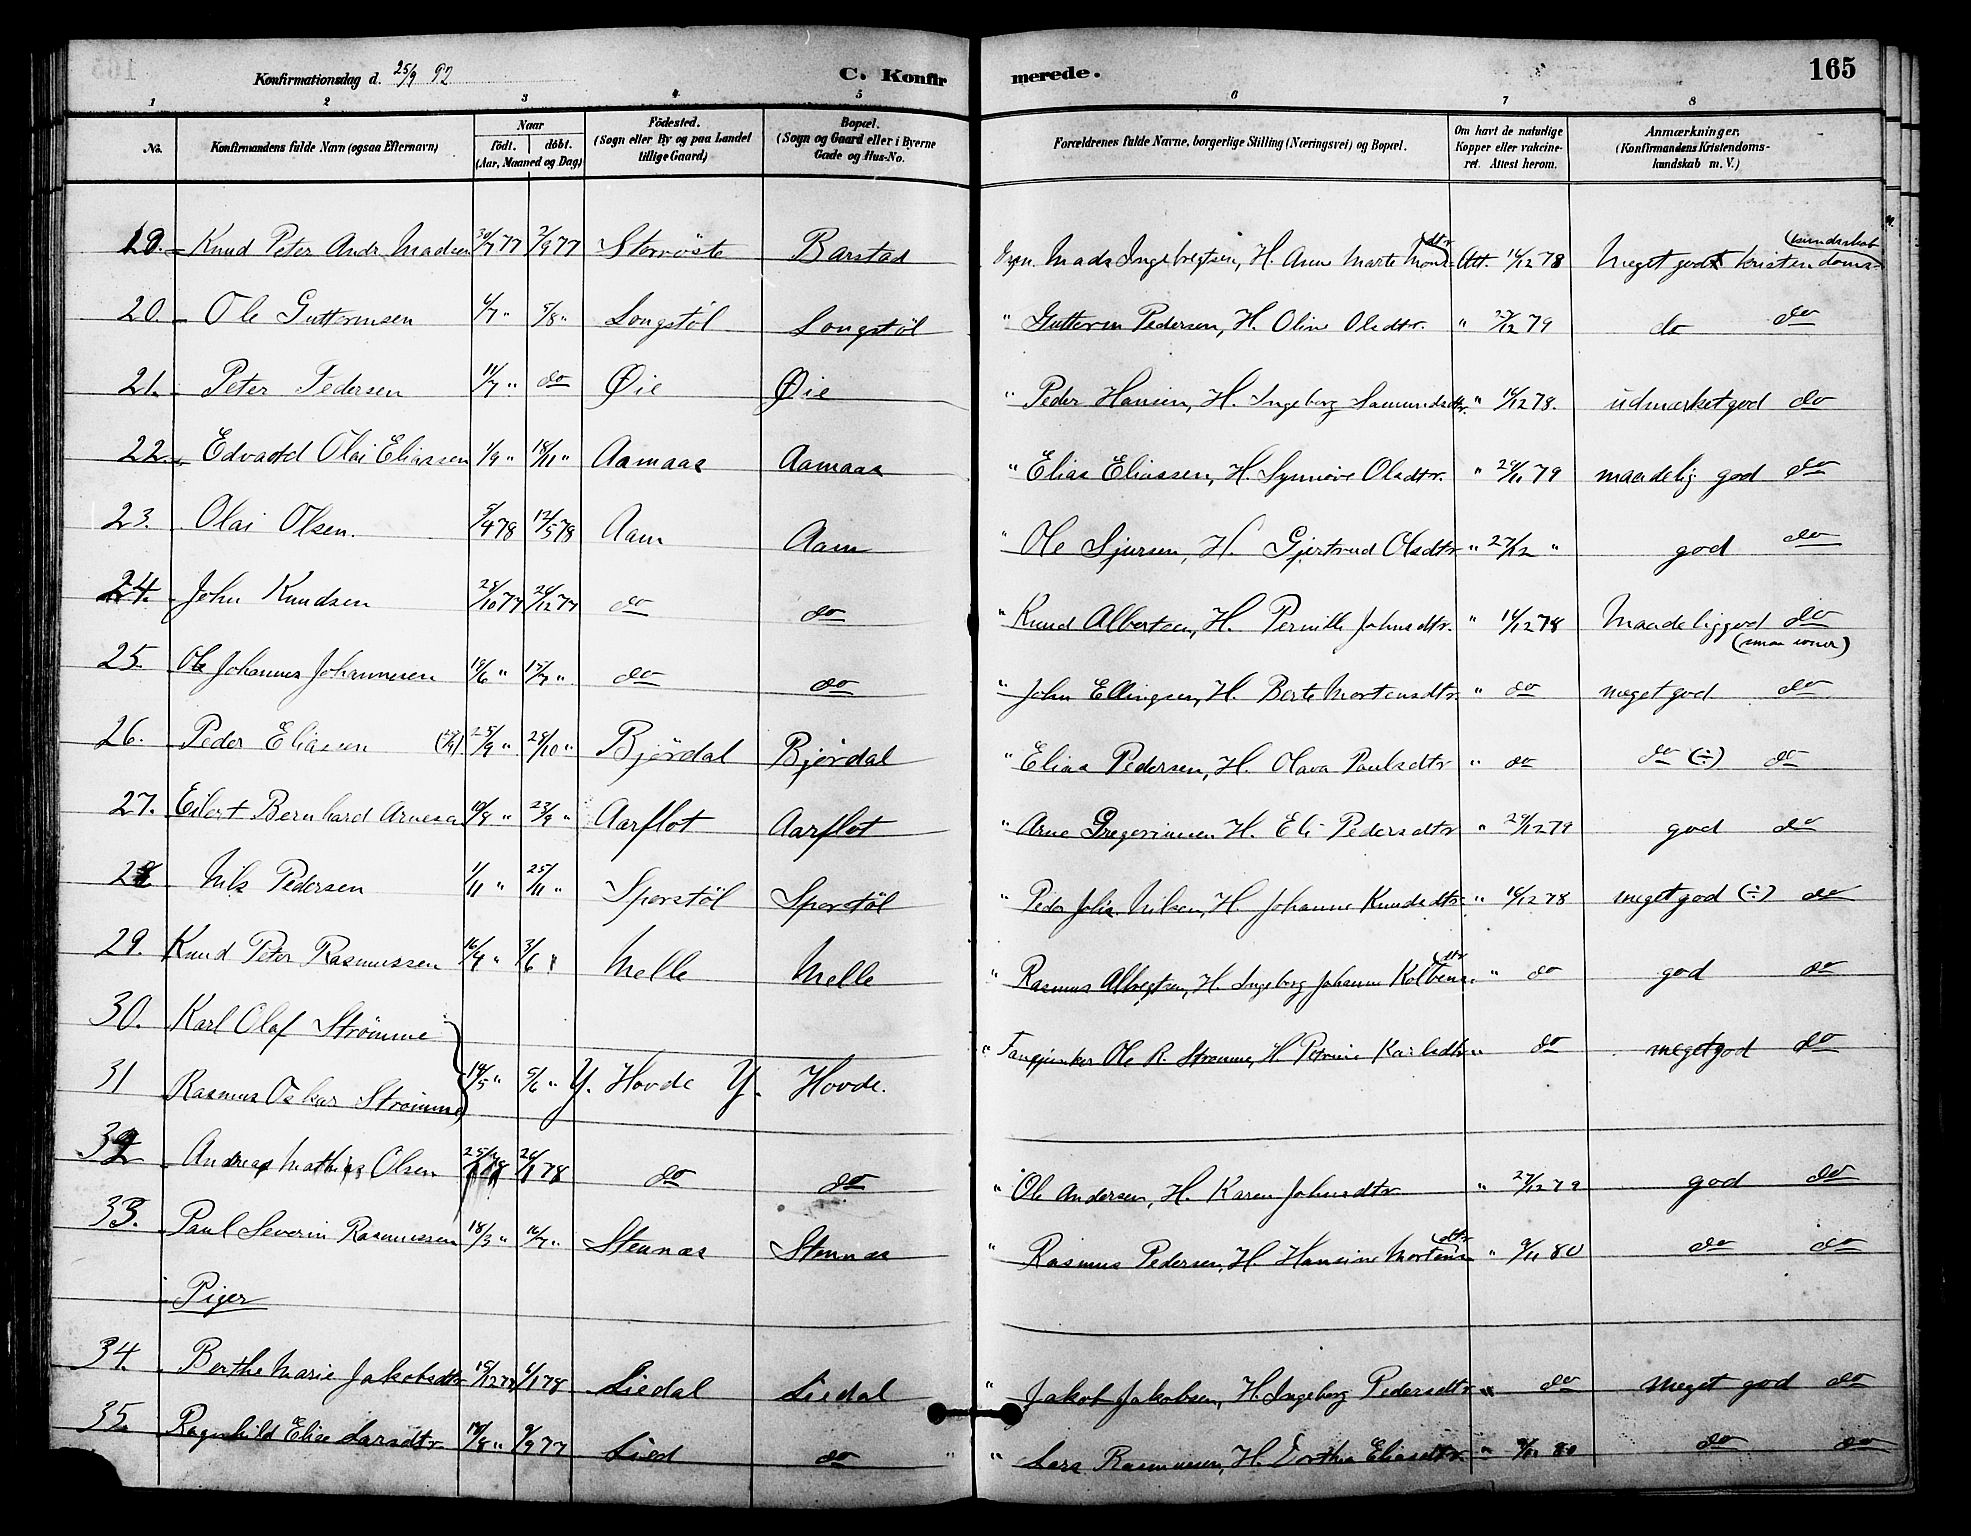 Konfirmationsdag d. 25/9 92 C. Konfirmerede. 165
1 2 3 4 5 6 7 8
No. Konfirmandens fulde Navn (ogsaa Efternavn) Naar födt. döbt. (Aar, Maaned og Dag) Födested. (Sogn eller By og paa Landet tillige Gaard) Bopæl. (Sogn og Gaard eller i Byerne Gade og Hus-No. Forældrenes fulde Navne, borgerlige Stilling (Næringsvei) og Bopæl. Om havt de naturlige Kopper eller vakcineret. Attest herom. Anmærkninger. (Konfirmandens Kristendomskundskab m. V.)
19. Knud Peter Andr. Madsen 30/7 77 2/9 77 Barstad Mads Ingebregtsen, H. Anne Marte Monsdtr Att. 16/12 78 Meget god kristendomskundskab
20. Ole Guttormsen 4/7 " 5/8 " Longstøl Longstøl " Guttorm Pedersen, H. Oline Olsdtr. " 27/12 79 do do
21. Peter Pedersen 11/7 " do Øie Øie " Peder Hansen, H. Ingeborg Samundsdtr. " 16/12 78. udmærket god do
22. Edvard Olai Eliassen 1/9 " 18/11 " Aamaas Aamaas " Elias Eliassen, H. Synnøve Olsdtr. " 29/11 79 maadelig god do
23. Olai Olsen. 3/4 78 12/5 78 Aam Aam " Ole Sjursen, H. Gjertrud Olsdtr " 27/12 " god do
24. John Knudsen 25/10 77 26/12 77 do do " Knud Albertsen, H. Pernille Johnsdtr. " 16/12 78 Maadelig god do
25. Ole Johannes Johannesen 19/6 " 15/7 " do do " John Ellingsen, H. Berte Mortensdtr. " do meget god do
26. Peder Eliassen 25/9 " 28/10 " Bjørdal Bjørdal " Elias Pedersen, H. Olava Paulsdtr " do do (÷) do
27. Eilert Bernhard Arnesen 19/8 " 23/9 " Aarflot Aarflot " Arne Gregoriusen H. Eli Pedersdtr " 29/12 79 god do
28 Nils Pedersen 1/11 " 25/11 " Sporstøl Sporstøl " Peder Nilsen, H. Johanne Knudsdtr " 16/12 78 meget god (÷) do
29. Knud Peter Rasmussen 16/4 " 3/6 " Melle Melle " Rasmus Albregtsen, H. Ingeborg Johanne Kolbensdtr " do god do
30. Karl Olaf Strømme " Fanejunker Ole R. Strømme, H. Petrine Karlsdtr " do meget god do
31 Rasmus Oskar Strømme 14/5 " 5/6 " Y. Hovde Y. Hovde.
32 Andreas Mathias Olsen 26/1 78 do do " Ole Andersen, H. Karen Johnsdtr " 27/12 79 god do
33. Paul Severin Rasmussen 18/3 " 16/7 " Stennes Stennes " Rasmus Pedersen, H. Hansine Mortensdtr " 9/11 80 do do
Piger
34. Berthe Marie Jakobsdtr 15/12 77 6/1 78 Liedal Liedal " Jakob Jakobsen, H. Ingeborg Pedersdtr " do meget god do
35. Ragnhild Elise Larsdtr 17/8 " 9/9 77 Lied do " Lars Rasmussen, H. Dorthea Eliasdtr. " 9/11 80 do do